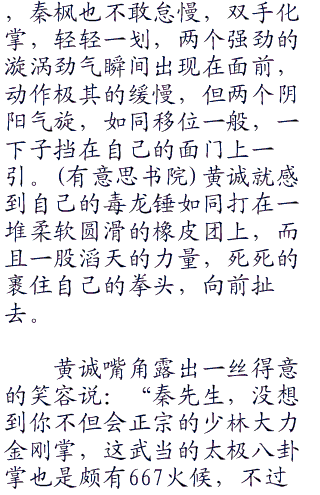 ，秦枫也不敢怠慢，双手化
掌，轻轻一划，两个强劲的
漩涡劲气瞬间出现在面前，
动作极其的缓慢，但两个阴
阳气旋，如同移位一般，一
下子挡在自己的面门上一
引。(有意思书院)黄诚就感
到自己的毒龙锤如同打在一
堆柔软圆滑的橡皮团上，而
且一股滔天的力量，死死的
裹住自己的拳头，向前扯
去。
黄诚嘴角露出一丝得意
的笑容说：“秦先生，没想
到你不但会正宗的少林大力
金刚掌，这武当的太极八卦
掌也是颇有667火候，不过